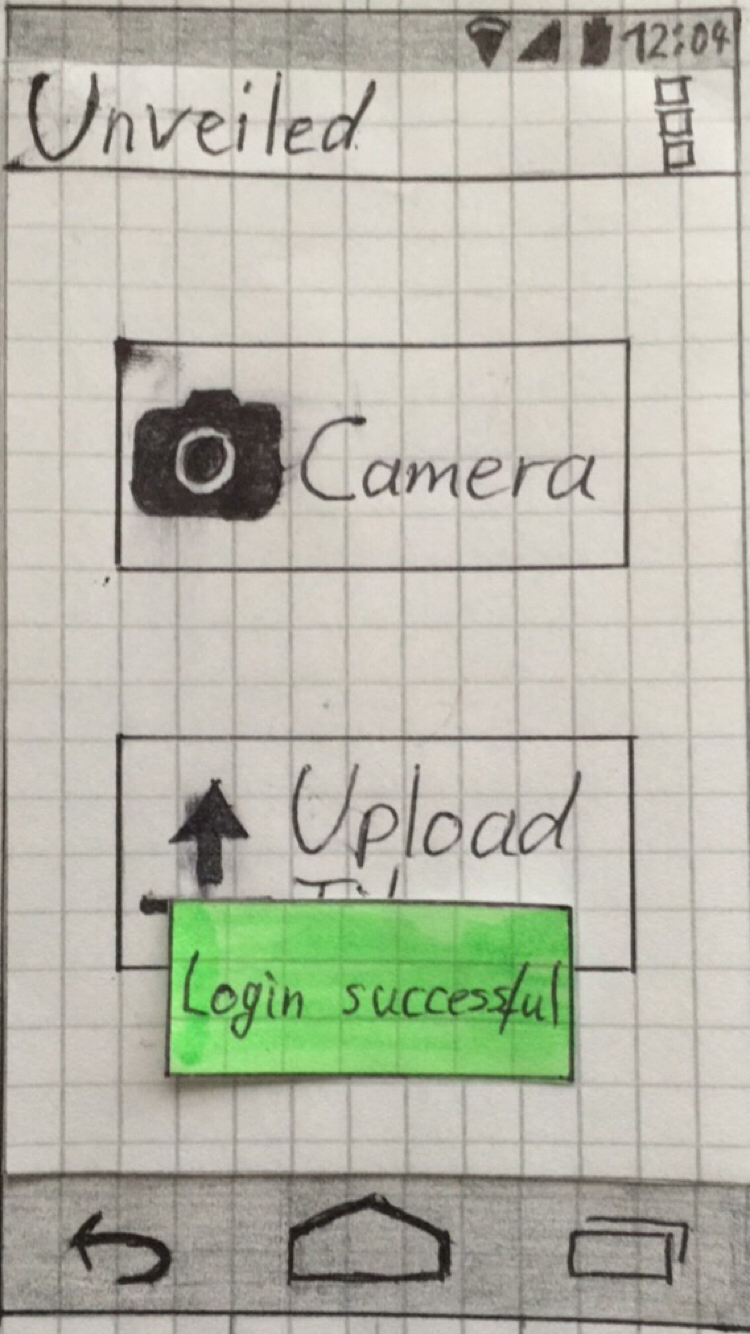 12:04
Unveiled
Camera
Upload
Login successful